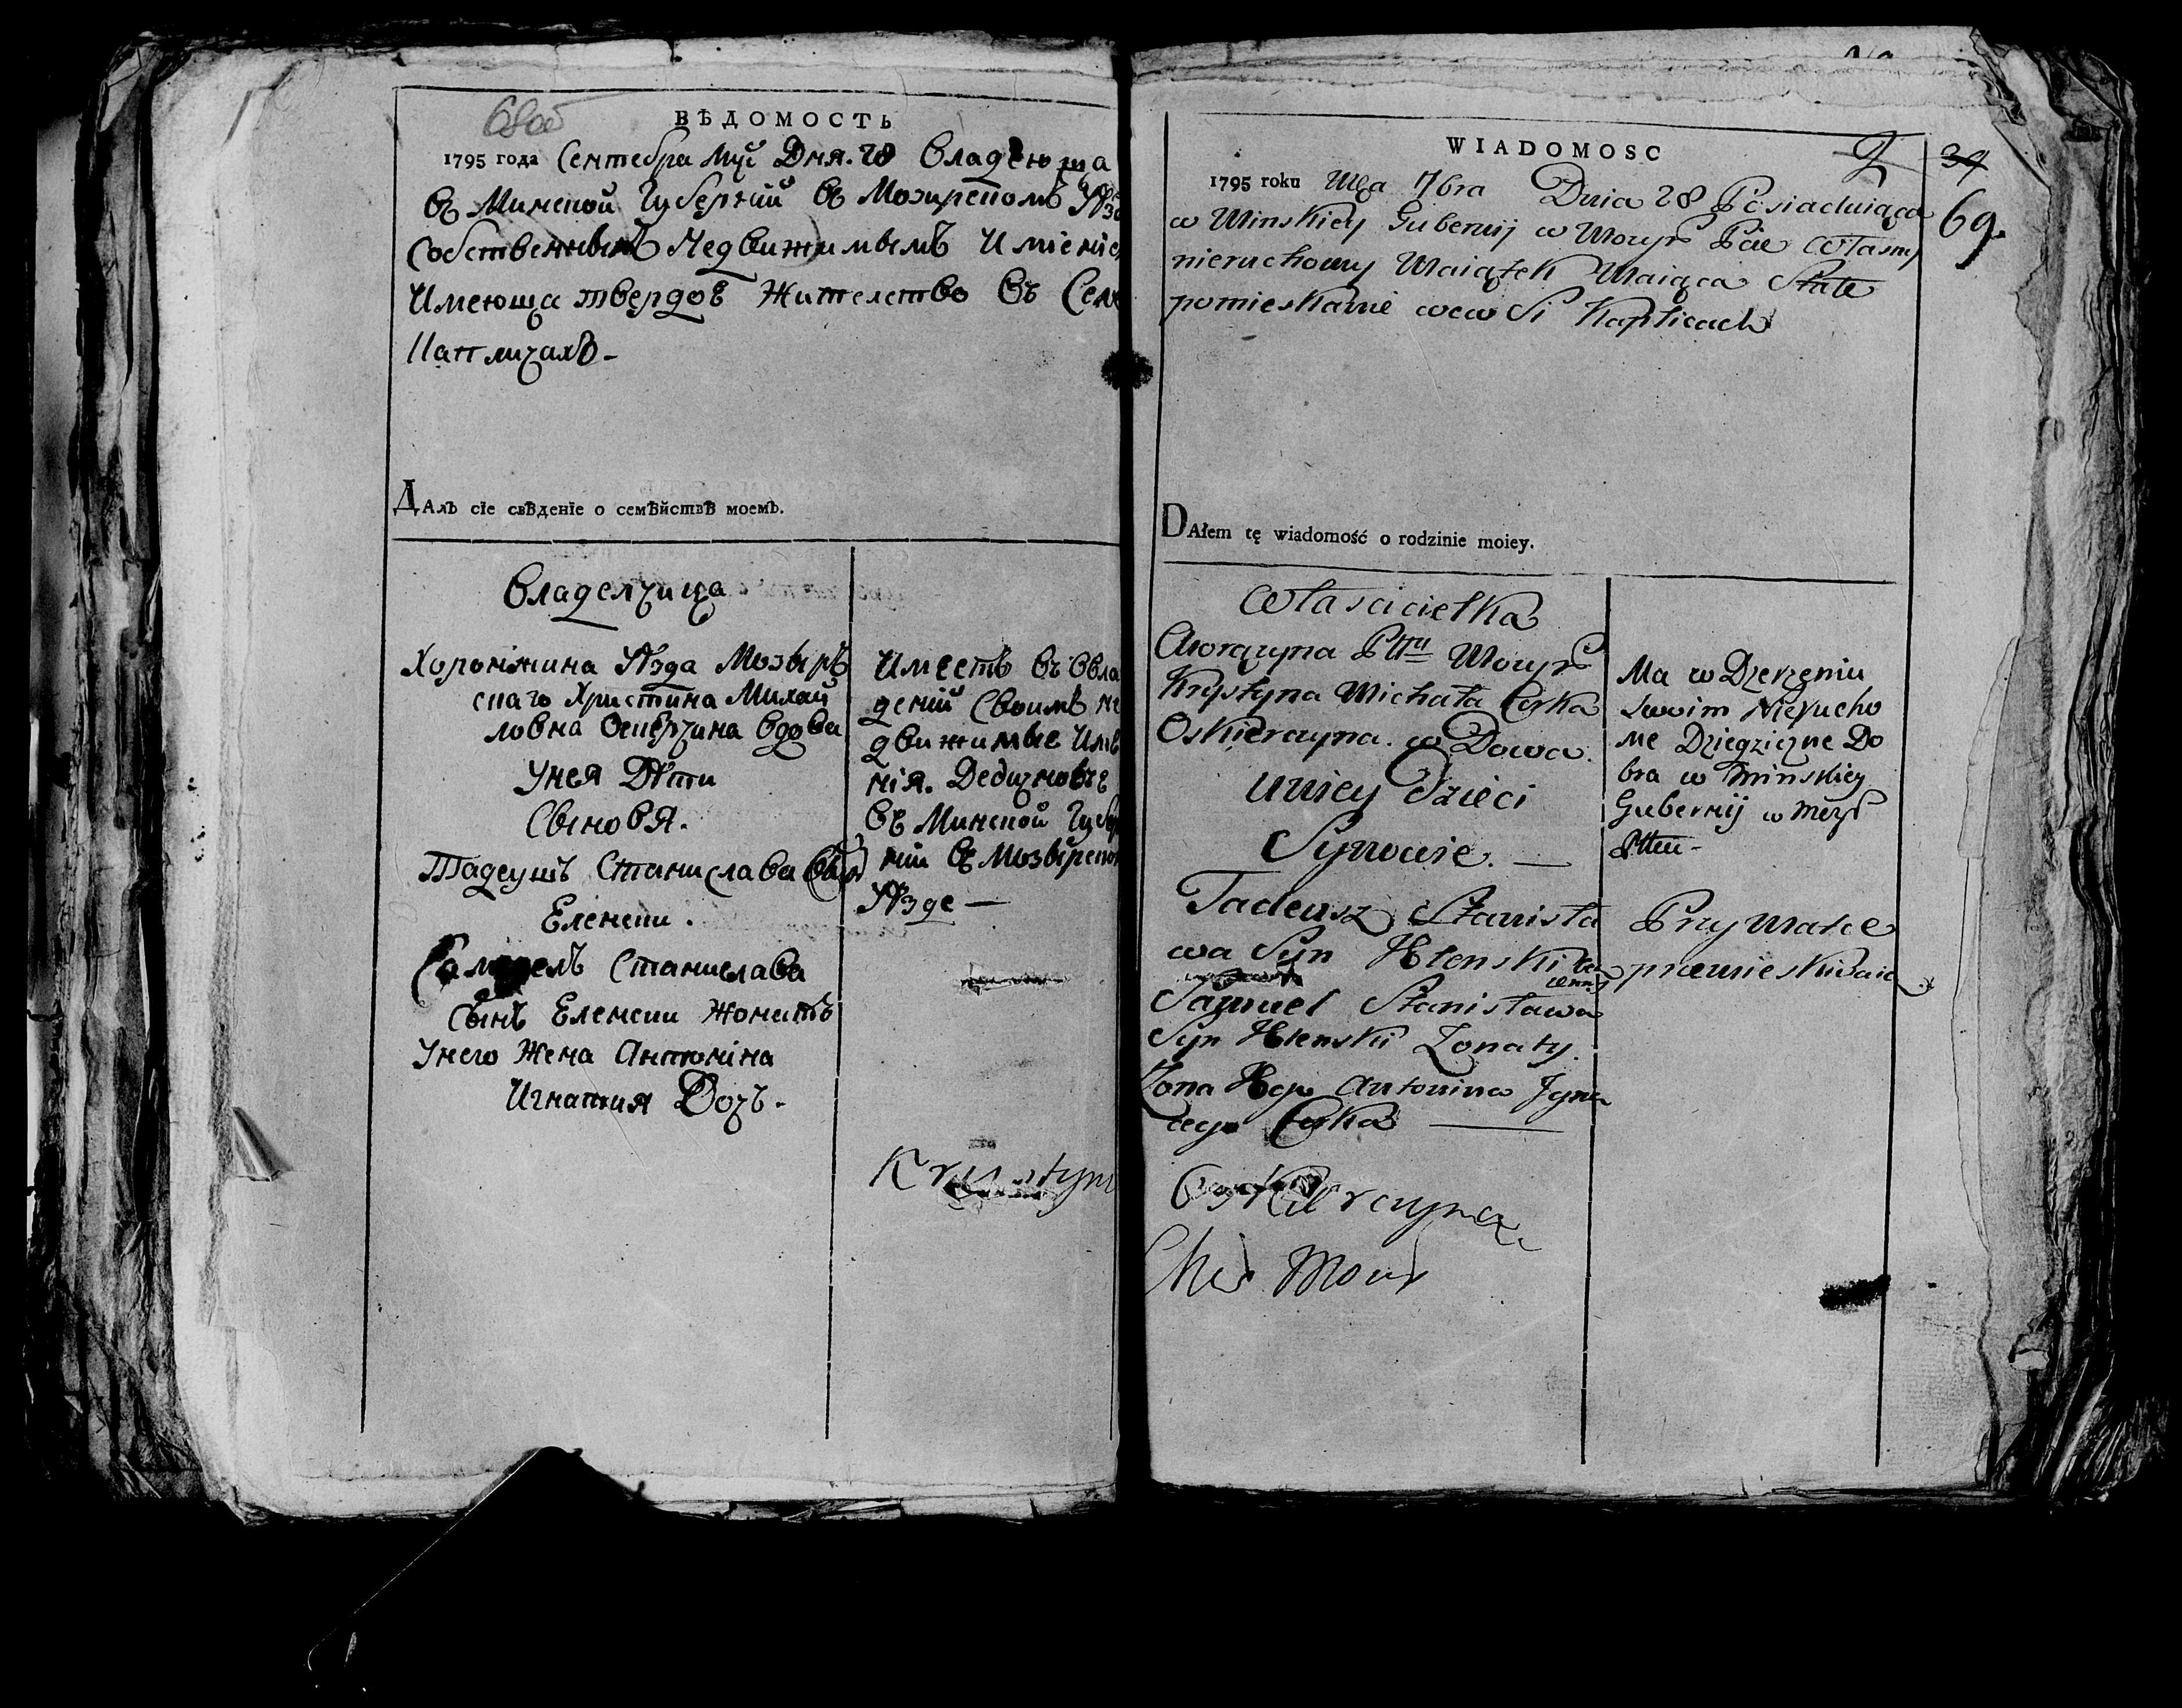 68об
ВѢДОМОСТЬ
1795 года Сентебра мца Дня 28 Владеюща
въ Минской Губерніи въ Мозирскомъ Уѣз
собственнымъ Недвижимымъ Имением
Имеюща твердоѣ Жителство въ Селе
Капличахъ-
ДАлъ сїе свѣденїе о семѣйствѣ моемъ.
Владелчица
Хоронжина Уѣзда Мозыр
скаго Христина Михай
ловна Оскерчина вдова
Унея Дѣти
Сыновя.
Тадеушъ Станислава Сын
Еленски.
Самуелъ Станислава
Сынъ Еленски Жонатъ
Унего Жена Антоніна
Игнатия Дочъ.
Имеетъ въ вла
деніи Своимъ не
движимые Имѣ
нія. Дедичновъе
въ Минской Губер
ніи въ Мозырском
Уѣзде —
Krystyn
WIADOMOSC
2 34
1795 roku Msca 7bra Dnia 28 Posiadaiąca
69.
w Minskiey Gubernij w Mozyr Pcie własny
nieruchomy Maiątek Maiąca Stałe
pomieskanie wew Si Kaplicach
DAłem tę wiadomość o rodzinie moiey.
Włascicielka
Chorązyna Pttu Mozyr
Krystyna Michała Corka
Oskierczyna wDowa.
Uniey Dzieci
Synowie. —
Tadeusz Stanisła
wa Syn Hlenski
Samuel Stanisława
Syn Hlenski Zonaty.
Zona Jego Antonina Jgna
cego Corka —
Oskierczyna
Cho Mozy
Ma w Dzerzeniu
swoim Nierucho
me Dziedziczne Do
bra w Minskiey
Gubernij w Mozyr
Pttcie-
Przy Matce
pomieskiwaie